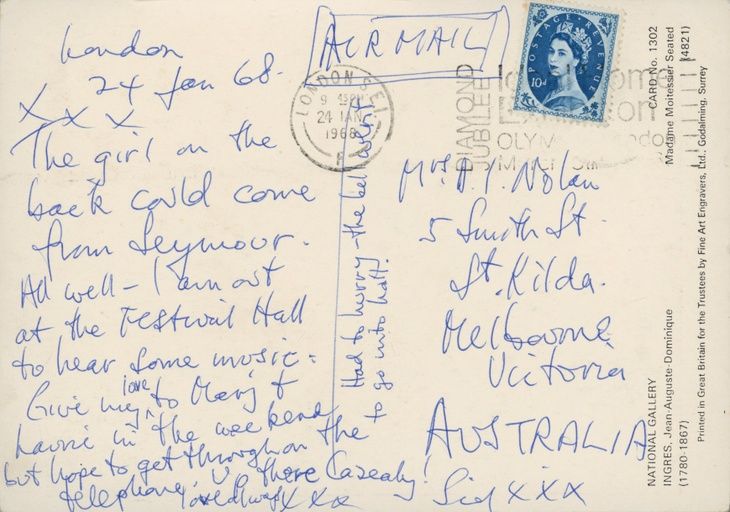 London
24 Jan 68.
X X X
The girl on the
back could come
from Seymour.
All well – I am out
at the Festival Hall
to hear some music.
Give my love to Marj &
Laurie in the weekend
but hope to get through on the
telephone, there Casealy!
love always XXX
Had to hurry – the bell went
to go into hall!
AIR MAIL
LONDON S.E.1
24 JAN
1968
F
POSTAGE REVENUE
10d
DIAMOND
JUBILEE
OLYM
Mrs. P. Y. Nolan
5 Smith St.
St. Kilda.
Melbourne
Victoria
AUSTRALIA
Sid XXX
NATIONAL GALLERY
INGRES, Jean-Auguste-Dominique
(1780-1867)
CARD No. 1302
Madame Moitessier Seated
(4821)
Printed in Great Britain for the Trustees by Fine Art Engravers, Ltd., Godalming, Surrey